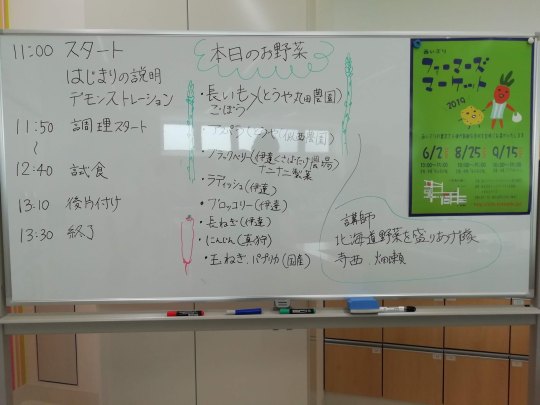 11:00 スタート
はじまりの説明
デモンストレーション
11:50 調理スタート
〜
12:40 試食
13:10 後片付け
13:30 終了
本日のお野菜
・長いも(とうや 丸田農園)
ごぼう
・ブラックベリー(伊達くさばたけ農場)
・ラディッシュ(伊達)
・ブロッコリー(伊達)
・長ねぎ(伊達)
・にんじん(真狩)
・玉ねぎ、パプリカ(国産)
講師
北海道野菜を盛りあげ隊
寺西、畑瀬
ファーマーズ
マーケット
2019
6/2 8/25 9/15